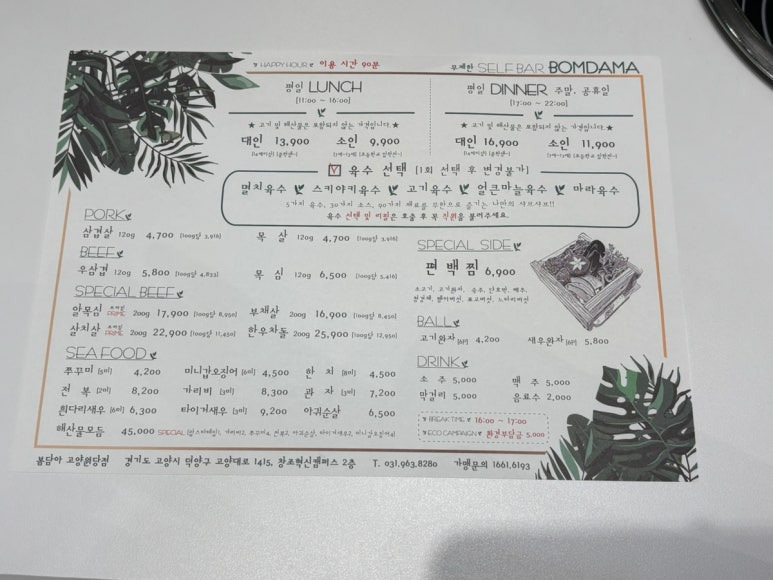 HAPPY HOUR 이용 시간 90분
무제한 SELF BAR BOMDAMA
평일 LUNCH
[11:00 ~ 16:00]
★ 고기 및 해산물은 포함되지 않는 가격입니다. ★
대인 13,900 소인 9,900
평일 DINNER 주말, 공휴일
[17:00 ~ 22:00]
★ 고기 및 해산물은 포함되지 않는 가격입니다. ★
대인 16,900 소인 11,900
육수 선택 [1회 선택 후 변경불가]
멸치육수 스키야키육수 고기육수 얼큰마늘육수 마라육수
5가지 육수, 30가지 소스, 40가지 재료를 무한으로 즐기는 나만의 샤브샤브!!
육수 선택 및 리필은 호출 후 꼭 직원을 불러주세요.
PORK
삼겹살 120g 4,700 [100g당 3,916]
목 살 120g 4,700 [100g당 3,916]
BEEF
우삼겹 120g 5,800 [100g당 4,833]
목 심 120g 6,500 [100g당 5,416]
SPECIAL BEEF
알목심 PRIME 200g 17,900 [100g당 8,950]
부채살 200g 16,900 [100g당 8,450]
살치살 PRIME 200g 22,900 [100g당 11,450]
한우차돌 200g 25,900 [100g당 12,950]
SEA FOOD
쭈꾸미 [5미] 4,200 미니갑오징어 [6미] 4,500 한 치 [8미] 4,500
전 복 [2미] 8,200 가리비 [3미] 8,300 관 자 [3미] 7,200
흰다리새우 [6미] 6,300 타이거새우 [3미] 9,200 아귀순살 6,500
해산물모듬 45,000 SPECIAL
SPECIAL SIDE
편백찜 6,900
BALL
고기완자 [6P] 4,200 새우완자 [6P] 5,800
DRINK
소 주 5,000 맥 주 5,000
막걸리 5,000 음료수 2,000
BREAK TIME 16:00 ~ 17:00
ECO CAMPAIGN 환경부담금 5,000
봄담아 고양원당점 경기도 고양시 덕양구 고양대로 1415, 창조혁신캠퍼스 2층 T. 031.963.8280 가맹문의 1661.6193